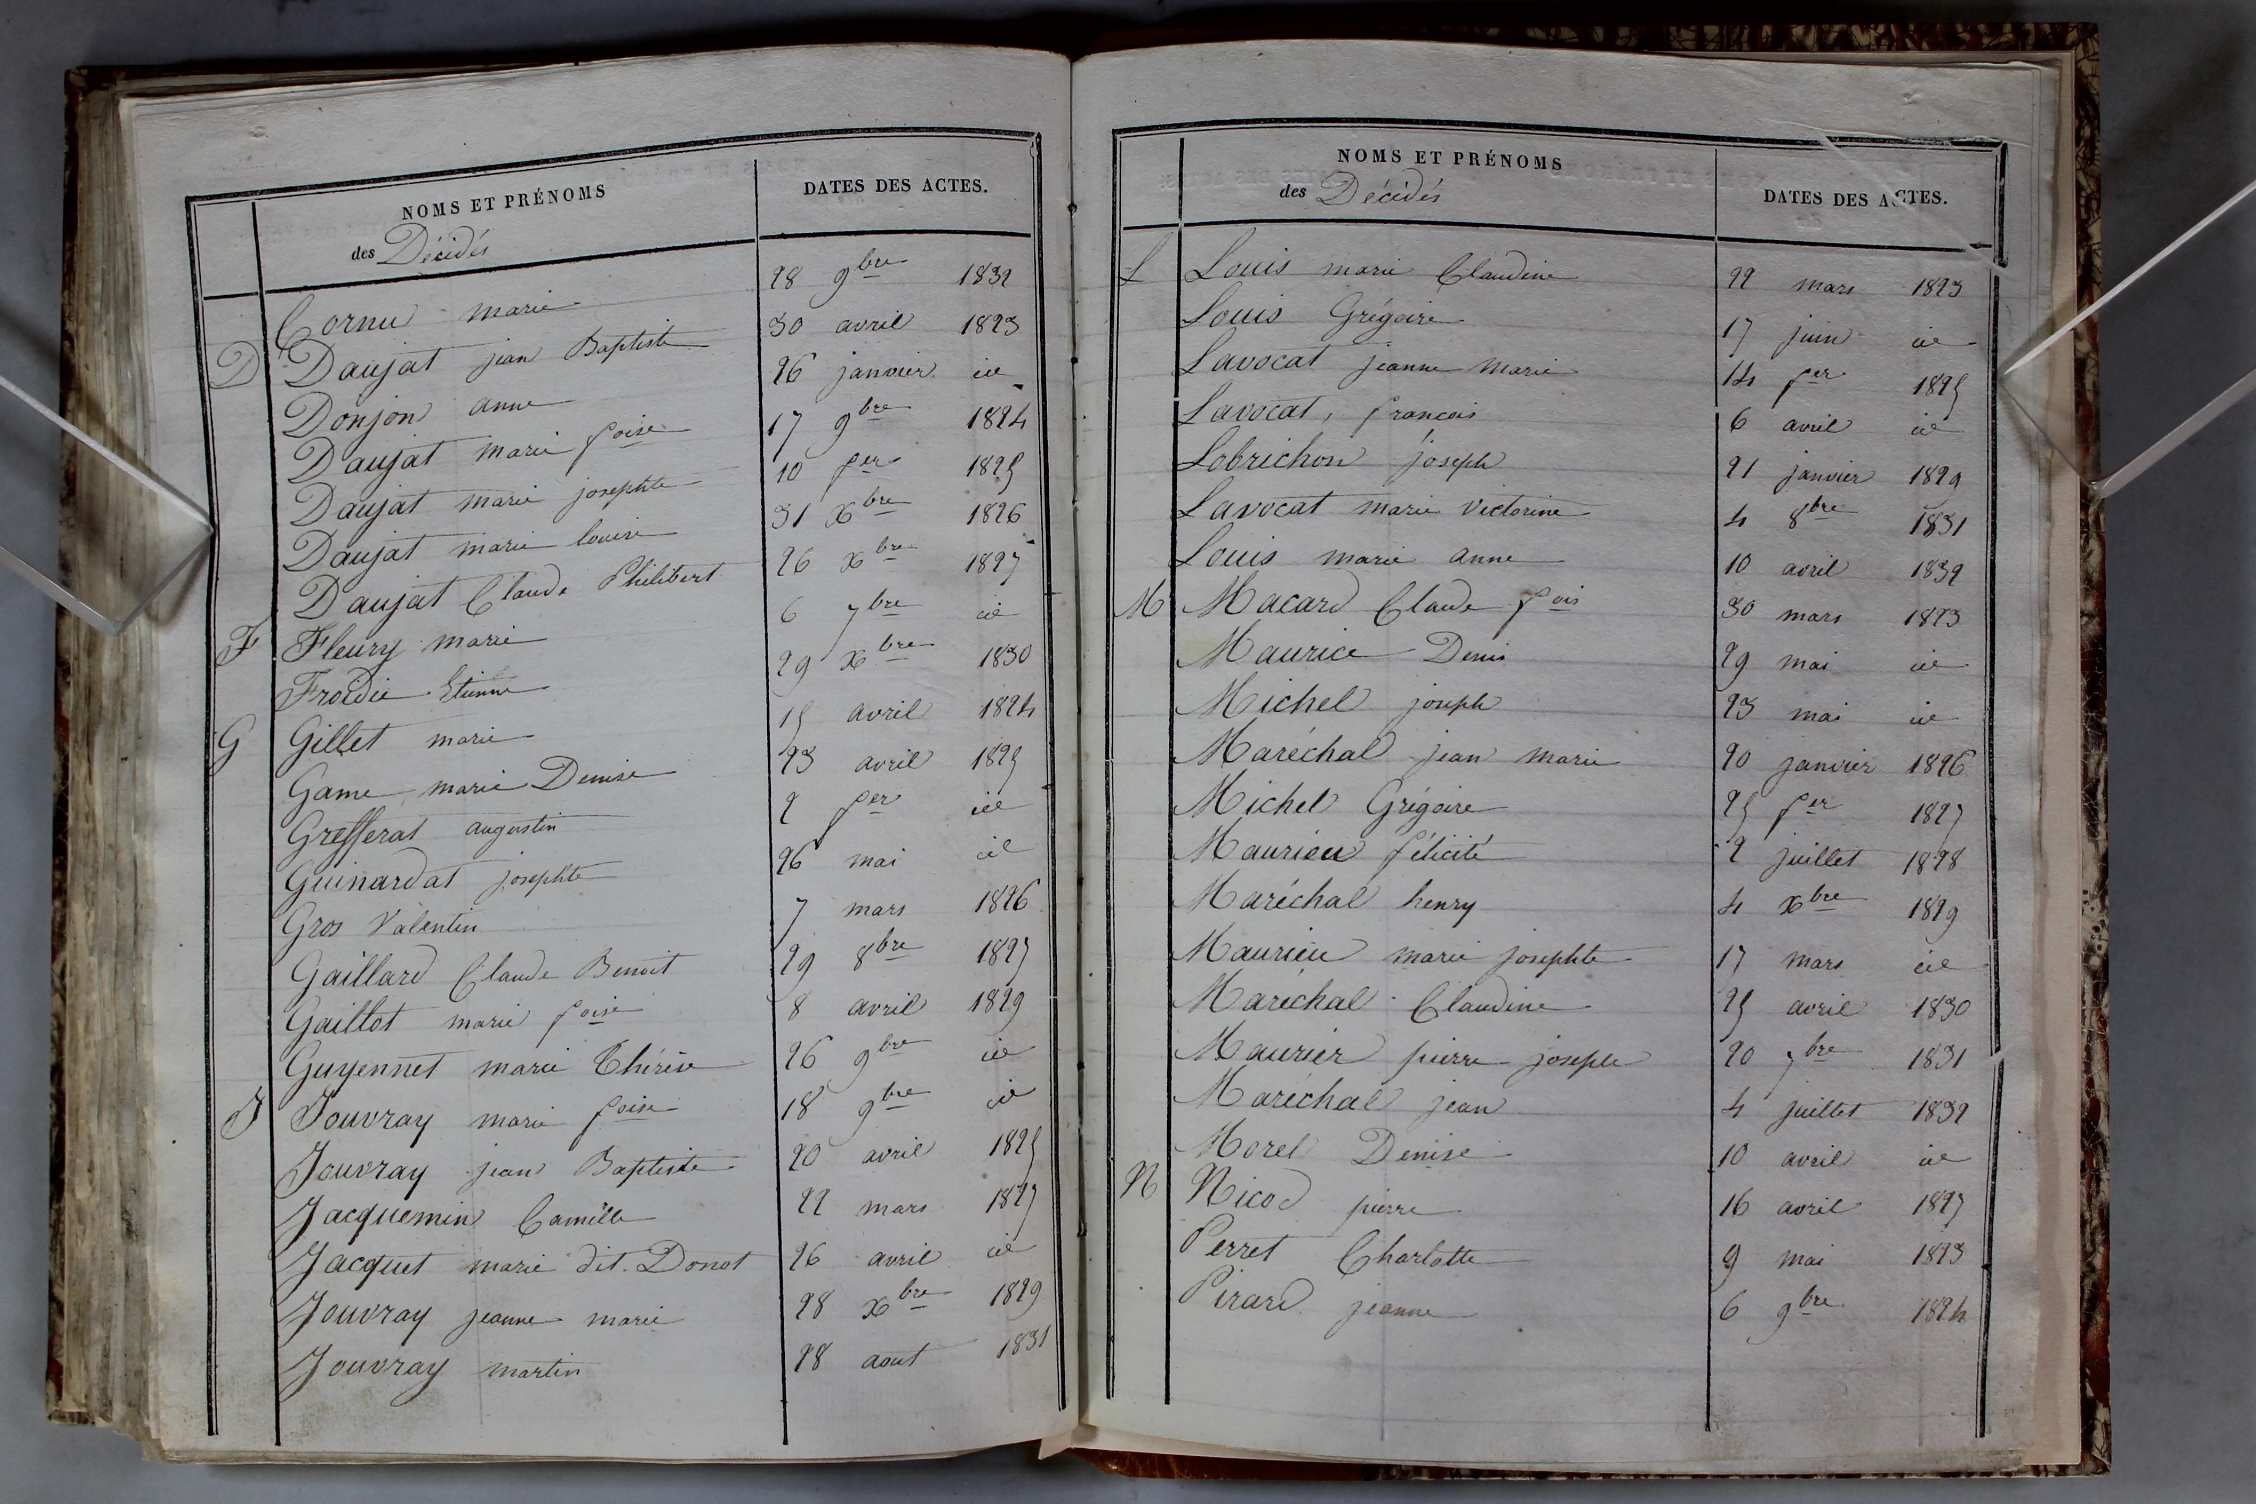 NOMS ET PRÉNOMS
des Décédés
DATES DES ACTES.
Cornu marie 28 9bre 1832
D Daujat jean Baptiste 30 avril 1823
Donjon anne 26 janvier id
Daujat marie foise 17 9bre 1824
Daujat marie josephte 10 fer 1825
Daujat marie louise 31 Xbre 1826
Daujat Claude Philibert 26 xbre 1827
F Fleury marie 6 7bre id
Froidie Etienne 29 xbre 1830
G Gillet marie 15 avril 1824
Game marie Denise 23 avril 1825
Grefferat augustin 2 fer id
Guinardat josephte 26 mai id
Gros Valentin 7 mars 1826
Gaillard Claude Benoit 29 8bre 1827
Gaillot marie foise 8 avril 1829
Guyennet marie Thérèse 26 9bre id
J Jouvray marie foise 18 9bre id
Jouvray jean Baptiste 20 avril 1825
Jacquemin Camille 22 mars 1827
Jacquet marie dit. Donot 26 avril id
Jouvray jeanne marie 28 xbre 1829
Jouvray martin 28 aout 1831
NOMS ET PRÉNOMS
des Décédés
DATES DES ACTES.
L Louis marie Claudine 22 mars 1823
Louis Grégoire 17 juin id
Lavocat jeanne marie 14 fer 1825
Lavocat, francois 6 avril id
Lobrichon joseph 21 janvier 1829
Lavocat marie victorine 4 8bre 1831
Louis marie anne 10 avril 1832
M Macard Claude fois 30 mars 1823
Maurice Denis 29 mai id
Michel joseph 23 mai id
Maréchal jean marie 20 janvier 1826
Michel Grégoire 25 fer 1827
Maurieu félicité 2 juillet 1828
Maréchal henry 4 xbre 1829
Maurieu marie josephte 17 mars id
Maréchal Claudine 25 avril 1830
Maurier pierre joseph 20 7bre 1831
Maréchal jean 4 juillet 1832
Morel Denise 10 avril id
N Nicod pierre 16 avril 1827
Perret Charlotte 9 mai 1823
Pirard jeanne 6 9bre 1824